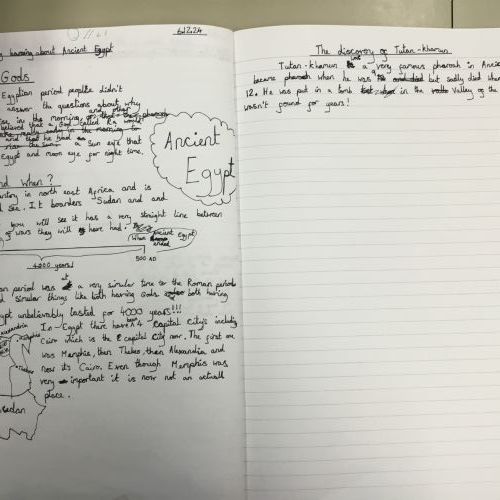 6.12.24
learning about Ancient Egypt
Gods
Egyption period people didn't
answer the questions about why
rise in the morning, and other
believed that a God called Ra would
and that he had
a Sun eye that
Egypt and moon eye for night time.
Ancient
Egypt
and When?
country in north east Africa and is
Sea. It boarders Sudan and and
you will see it has a very straight line between
of wars they will have had.
When ancient Egypt
ended
4000 years!
500 AD
period was at a very simular time to the Roman period
simular things like both having Gods both having
Egypt unbelivably lasted for 4000 years!!!
Alexandria
Memphis
Thebes
Sudan
In Egypt there have been 4 capital city's including
Cairo which is the capital city now. The first one
was Memphis, then Thebes, then Alexandria and
now its Cairo. Even though Memphis was
very important it is now not an actuall
place.
The discovery of Tutan-khamun
Tutan-khamun was a very famous pharoah in
became pharoah when he was 9 but sadly died when
12. He was put in a tomb in the Valley of the
wasn't found for years!